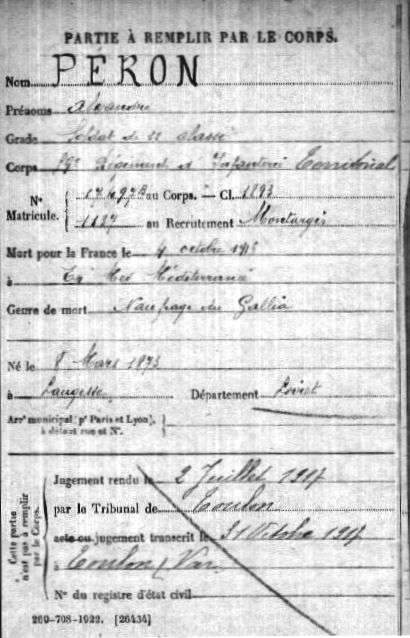 PARTIE À REMPLIR PAR LE CORPS.
Nom PÉRON
Prénoms Alexandre
Grade Soldat de 2e classe
Corps Régiment d'Infanterie Territorial
Nº Matricule. { 17497B au Corps. — Cl. 1893
1127 au Recrutement Montargis
Mort pour la France le 4 octobre 1916
à En Mer Méditerranée
Genre de mort Naufrage du Gallia
Né le 8 Mars 1873
à Langesse Département Loiret
Arrt municipal (pr Paris et Lyon), à défaut rue et Nº. }
Cette partie n'est pas à remplir par le Corps.
Jugement rendu le 2 Juillet 1917
par le Tribunal de Toulon
acte ou jugement transcrit le 31 Octobre 1917
à Toulon (Var)
Nº du registre d'état civil
260-708-1922. [26434]